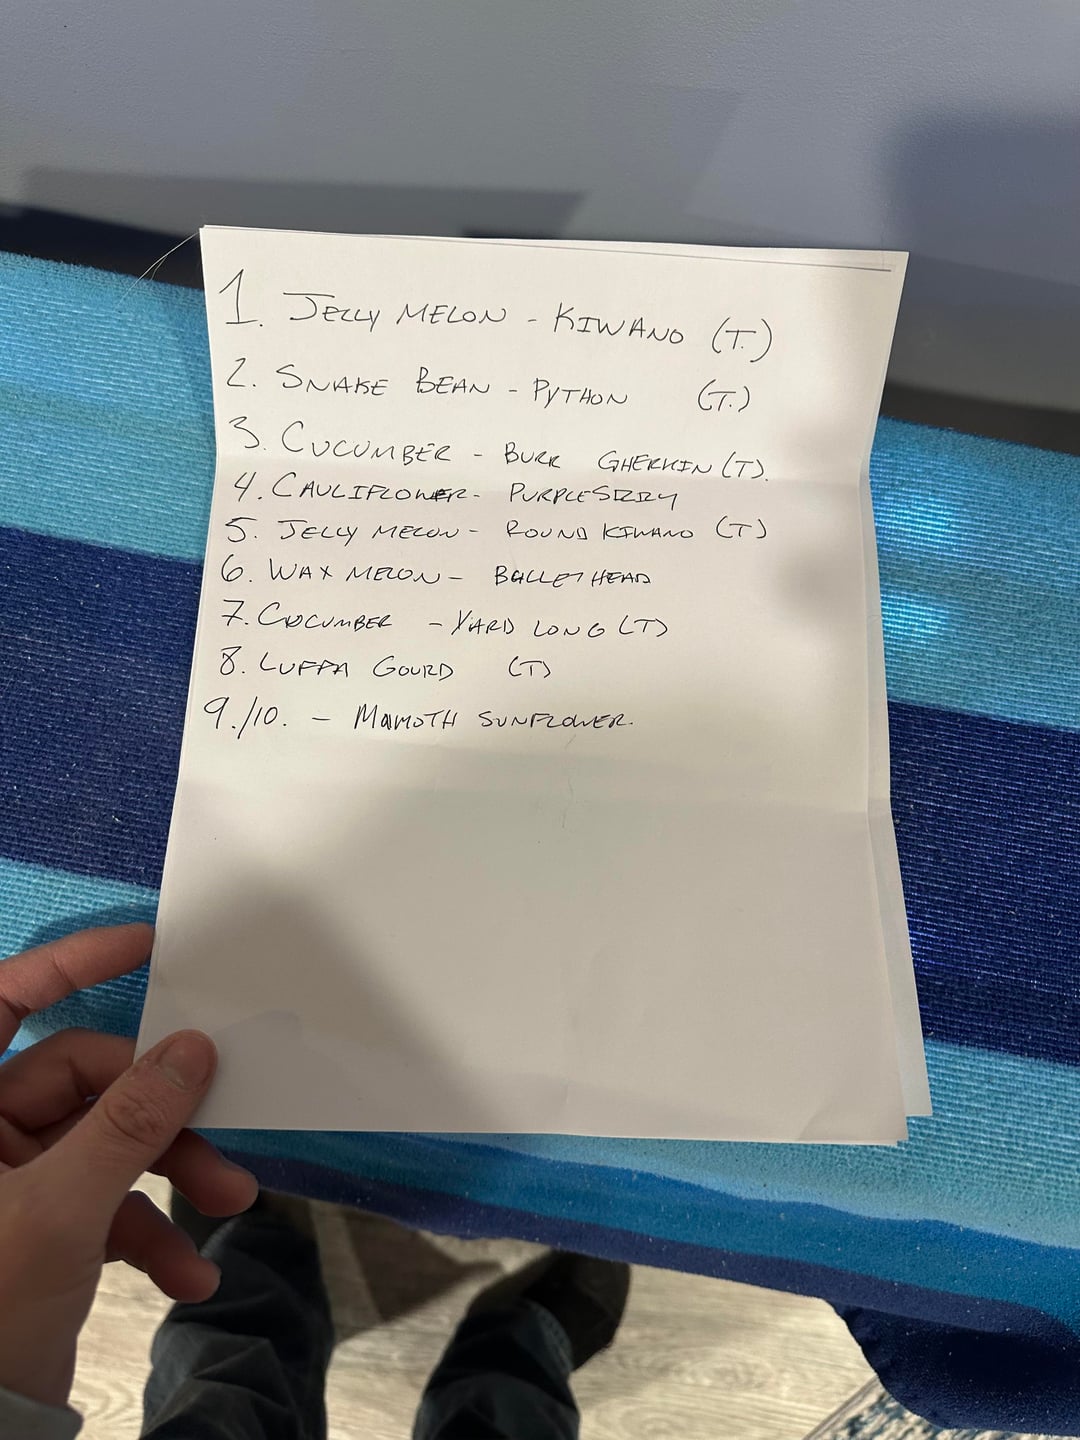 1. JELLY MELON - KIWANO (T.)
2. SNAKE BEAN - PYTHON (T.)
3. CUCUMBER - BURR GHERKIN (T).
4. CAULIFLOWER - PURPLESIZZY
5. JELLY MELON - ROUND KIWANO (T)
6. WAX MELON - BULLETHEAD
7. CUCUMBER - YARD LONG (T)
8. LUFFA GOURD (T)
9./10. - MAMOTH SUNFLOWER.